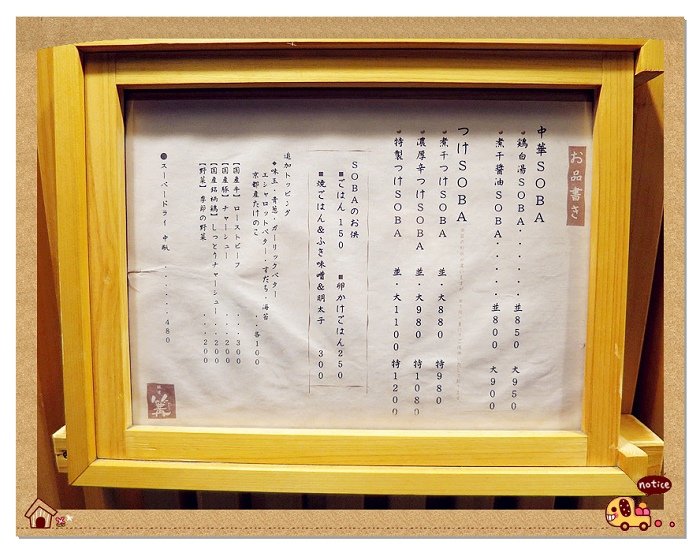 お品書き
中華SOBA
鶏白湯SOBA・・・・・並850 大950
煮干醤油SOBA・・・・・並800 大900
つけSOBA
煮干つけSOBA 並・大880 特980
濃厚辛つけSOBA 並・大980 特1080
特製つけSOBA 並・大1100 特1200
SOBAのお供
■ごはん 150 ■卵かけごはん250
■焼ごはん&ふき味噌&明太子 300
追加トッピング
◆味玉・青葱・ガーリックバター
エシャロットバター・すだち・海苔
京都産たけのこ ・・各100
【国産牛】ローストビーフ ・・・300
【国産豚】チャーシュー ・・・200
【国産銘柄鶏】しっとりチャーシュー ・・・200
【野菜】季節の野菜 ・・・200
●スーパードライ 中瓶 ・・・・・・480
篝
notice